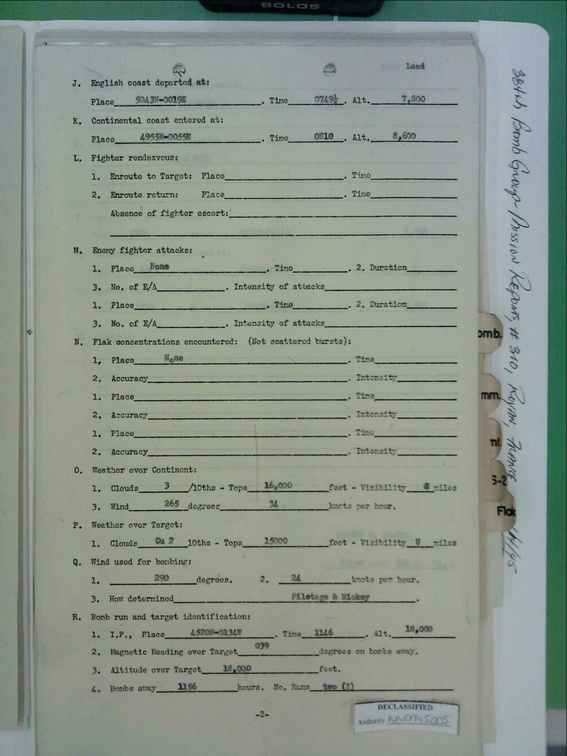 SOLOS
Lead
J. English coast departed at:
Place 5043N-0019E . Time 0749½ . Alt. 7,800
K. Continental coast entered at:
Place 4955N-0055E . Time 0810 . Alt. 8,600
L. Fighter rendezvous:
1. Enroute to Target: Place . Time
2. Enroute return: Place . Time
Absence of fighter escort:
M. Enemy fighter attacks:
1. Place None . Time . 2. Duration
3. No. of E/A . Intensity of attacks
1. Place . Time . 2. Duration
3. No. of E/A . Intensity of attacks
N. Flak concentrations encountered: (Not scattered bursts):
1, Place None . Time
2. Accuracy . Intensity
1. Place . Time
2. Accuracy . Intensity
1. Place . Time
2. Accuracy . Intensity
O. Weather over Continent:
1. Clouds 3 /10ths - Tops 16,000 feet - Visibility miles
3. Wind 265 degrees 34 knots per hour.
P. Weather over Target:
1. Clouds Cu 2 10ths - Tops 15000 feet - Visibility miles
Q. Wind used for bombing:
1. 290 degrees. 2. 24 knots per hour.
3. How determined Pilotage & Mickey .
R. Bomb run and target identification:
1. I.P., Place 4520N-0134W . Time 1146 . Alt. 18,000
2. Magnetic Heading over Target 039 degrees on bombs away.
3. Altitude over Target 18,000 feet.
4. Bombs away 1156 hours. No. Runs two (2)
-2-
DECLASSIFIED
Authority NND745005
384th Bomb Group - Mission Reports # 310, Royan, France
omb.
mm
nt
S-2
Flak